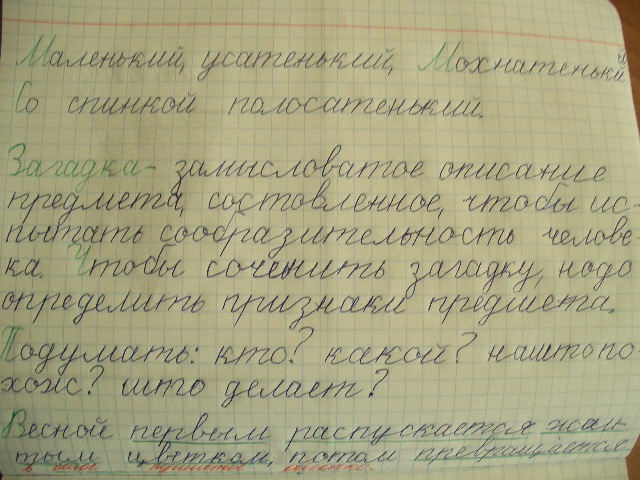 Маленький, усатенький, Мохнатенький
Со спинкой полосатенький.
Загадка - замысловатое описание
предмета, состовленное, чтобы ис-
пытать сообразительность челове-
ка. Чтобы соченить загадку, нодо
определить признаки предмета.
Подумать: кто? какой? наштопо
хож? што делает?
Весной первым распускается жол
тым цветком, потом превращается
в белое пушистое